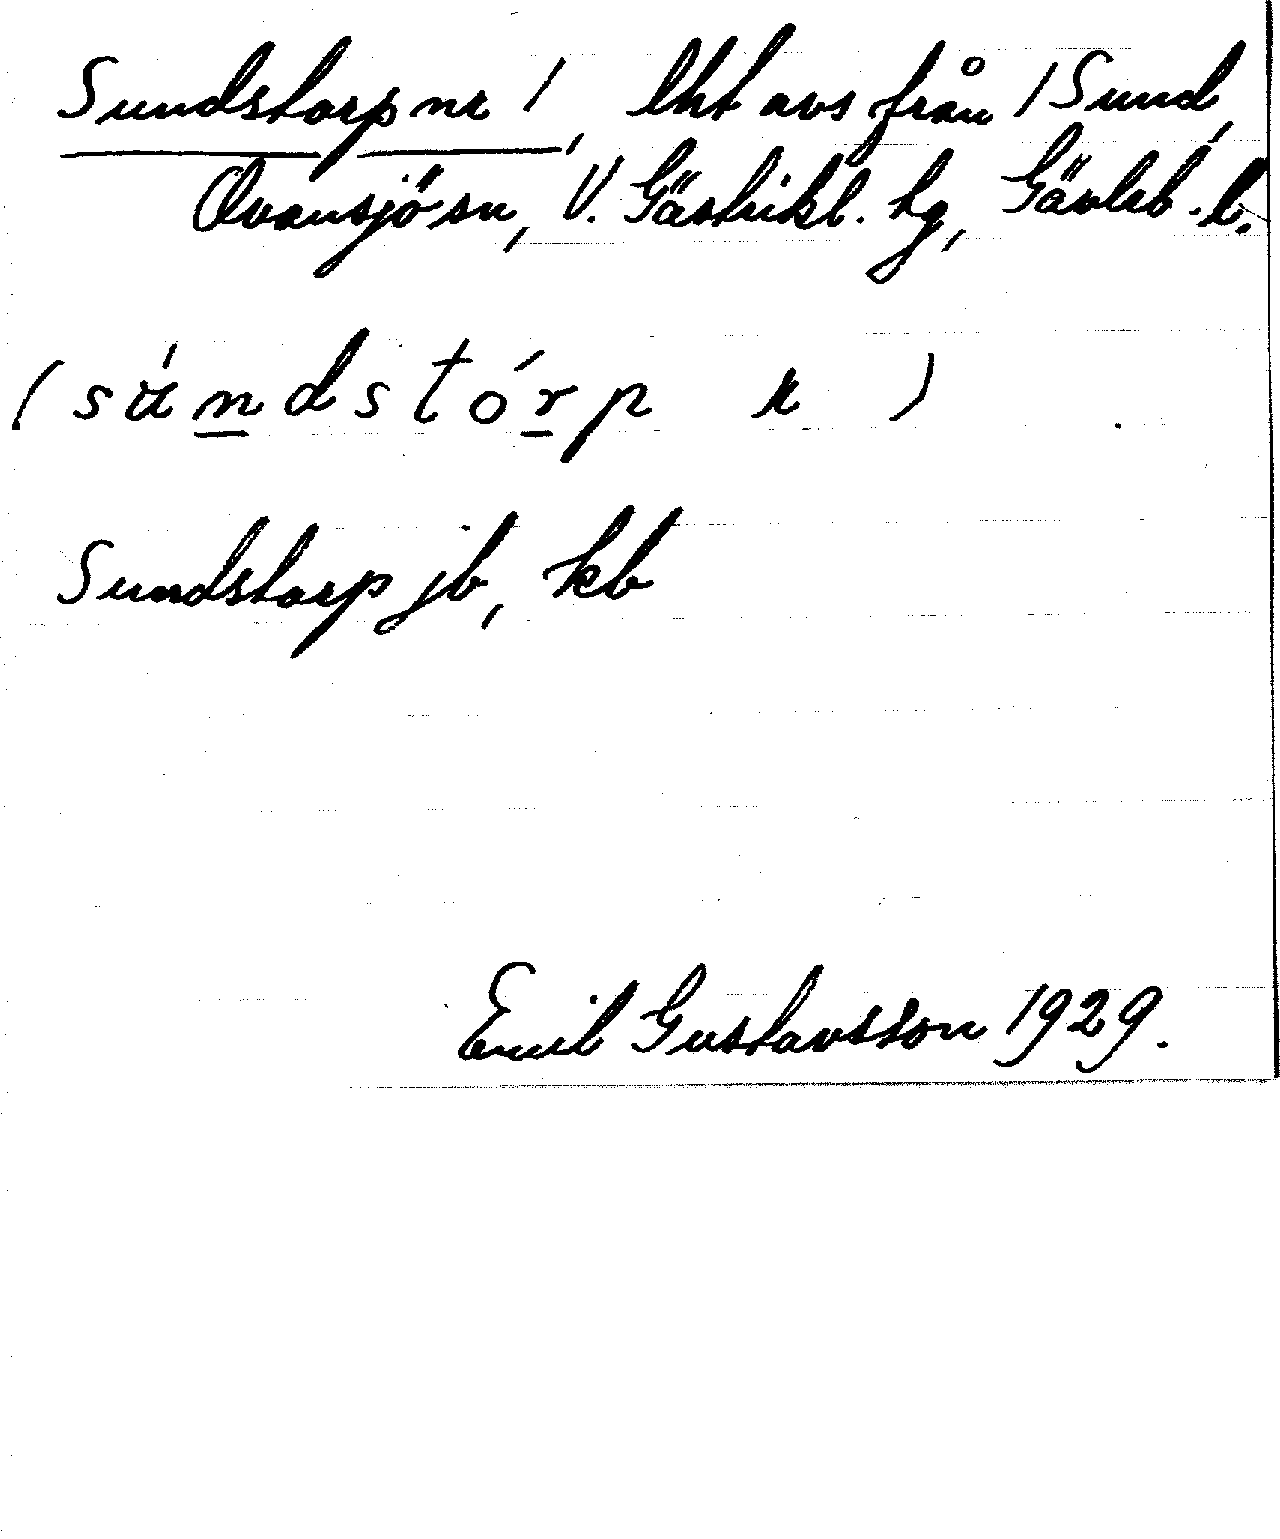 Sundstorp nr 1, lht avs från 1 Sund,
Ovansjö sn, V. Gästrikl. hg, Gävleb. l.
(súndstórp n)
Sundstorp jb, kb
Emil Gustavsson 1929.